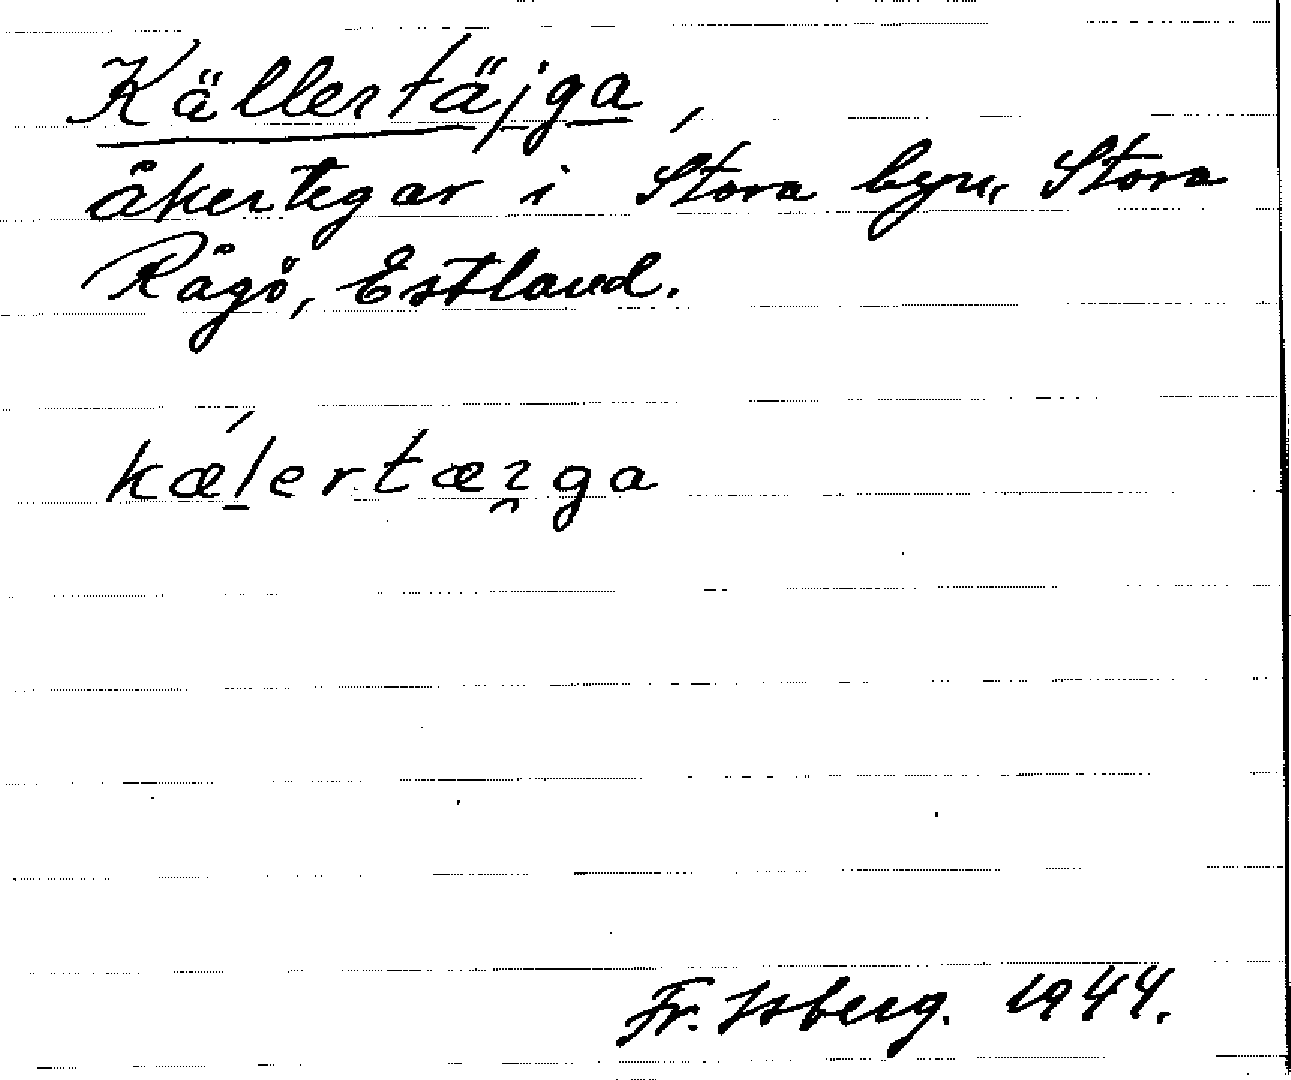 Källertäjga,
åkertegar i Stora byn, Stora
Rågö, Estland.
kǽl̲ertæɿ̯ga
Fr. Isberg. 1944.